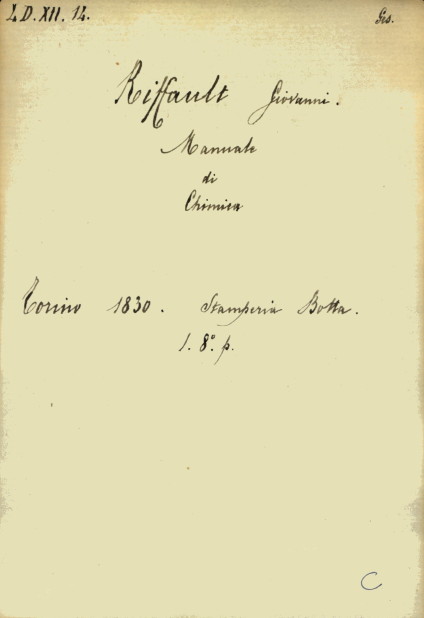 L D. XII. 14.
Gio.
Riffault Giovanni.
Manuale
di
Chimica
Torino 1830. Stamperia Botta.
1. 8º. p.
C